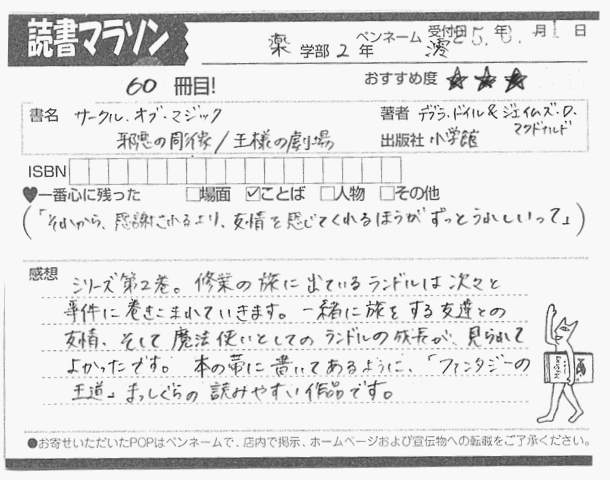 読書マラソン
薬 学部 2 年 ペンネーム 澪
受付日 年 月 日
60 冊目!
おすすめ度 ★ ★ ★
書名 サークル・オブ・マジック
邪悪の彫像/王様の劇場
著者 デブラ・ドイル & ジェイムズ・D.
マクドナルド
出版社 小学館
ISBN
♥一番心に残った □場面 ☑ことば □人物 □その他
(「それから、感謝されるより、友情を感じてくれるほうがずっとうれしいって」)
感想
シリーズ第2巻。修業の旅に出ているランドルは次々と
事件に巻きこまれていきます。一緒に旅をする友達との
友情、そして魔法使いとしてのランドルの成長が、見られて
よかったです。本の帯に書いてあるように、「ファンタジーの
王道」まっしぐらの読みやすい作品です。
●お寄せいただいたPOPはペンネームで、店内で掲示、ホームページおよび宣伝物への転載をご了承ください。